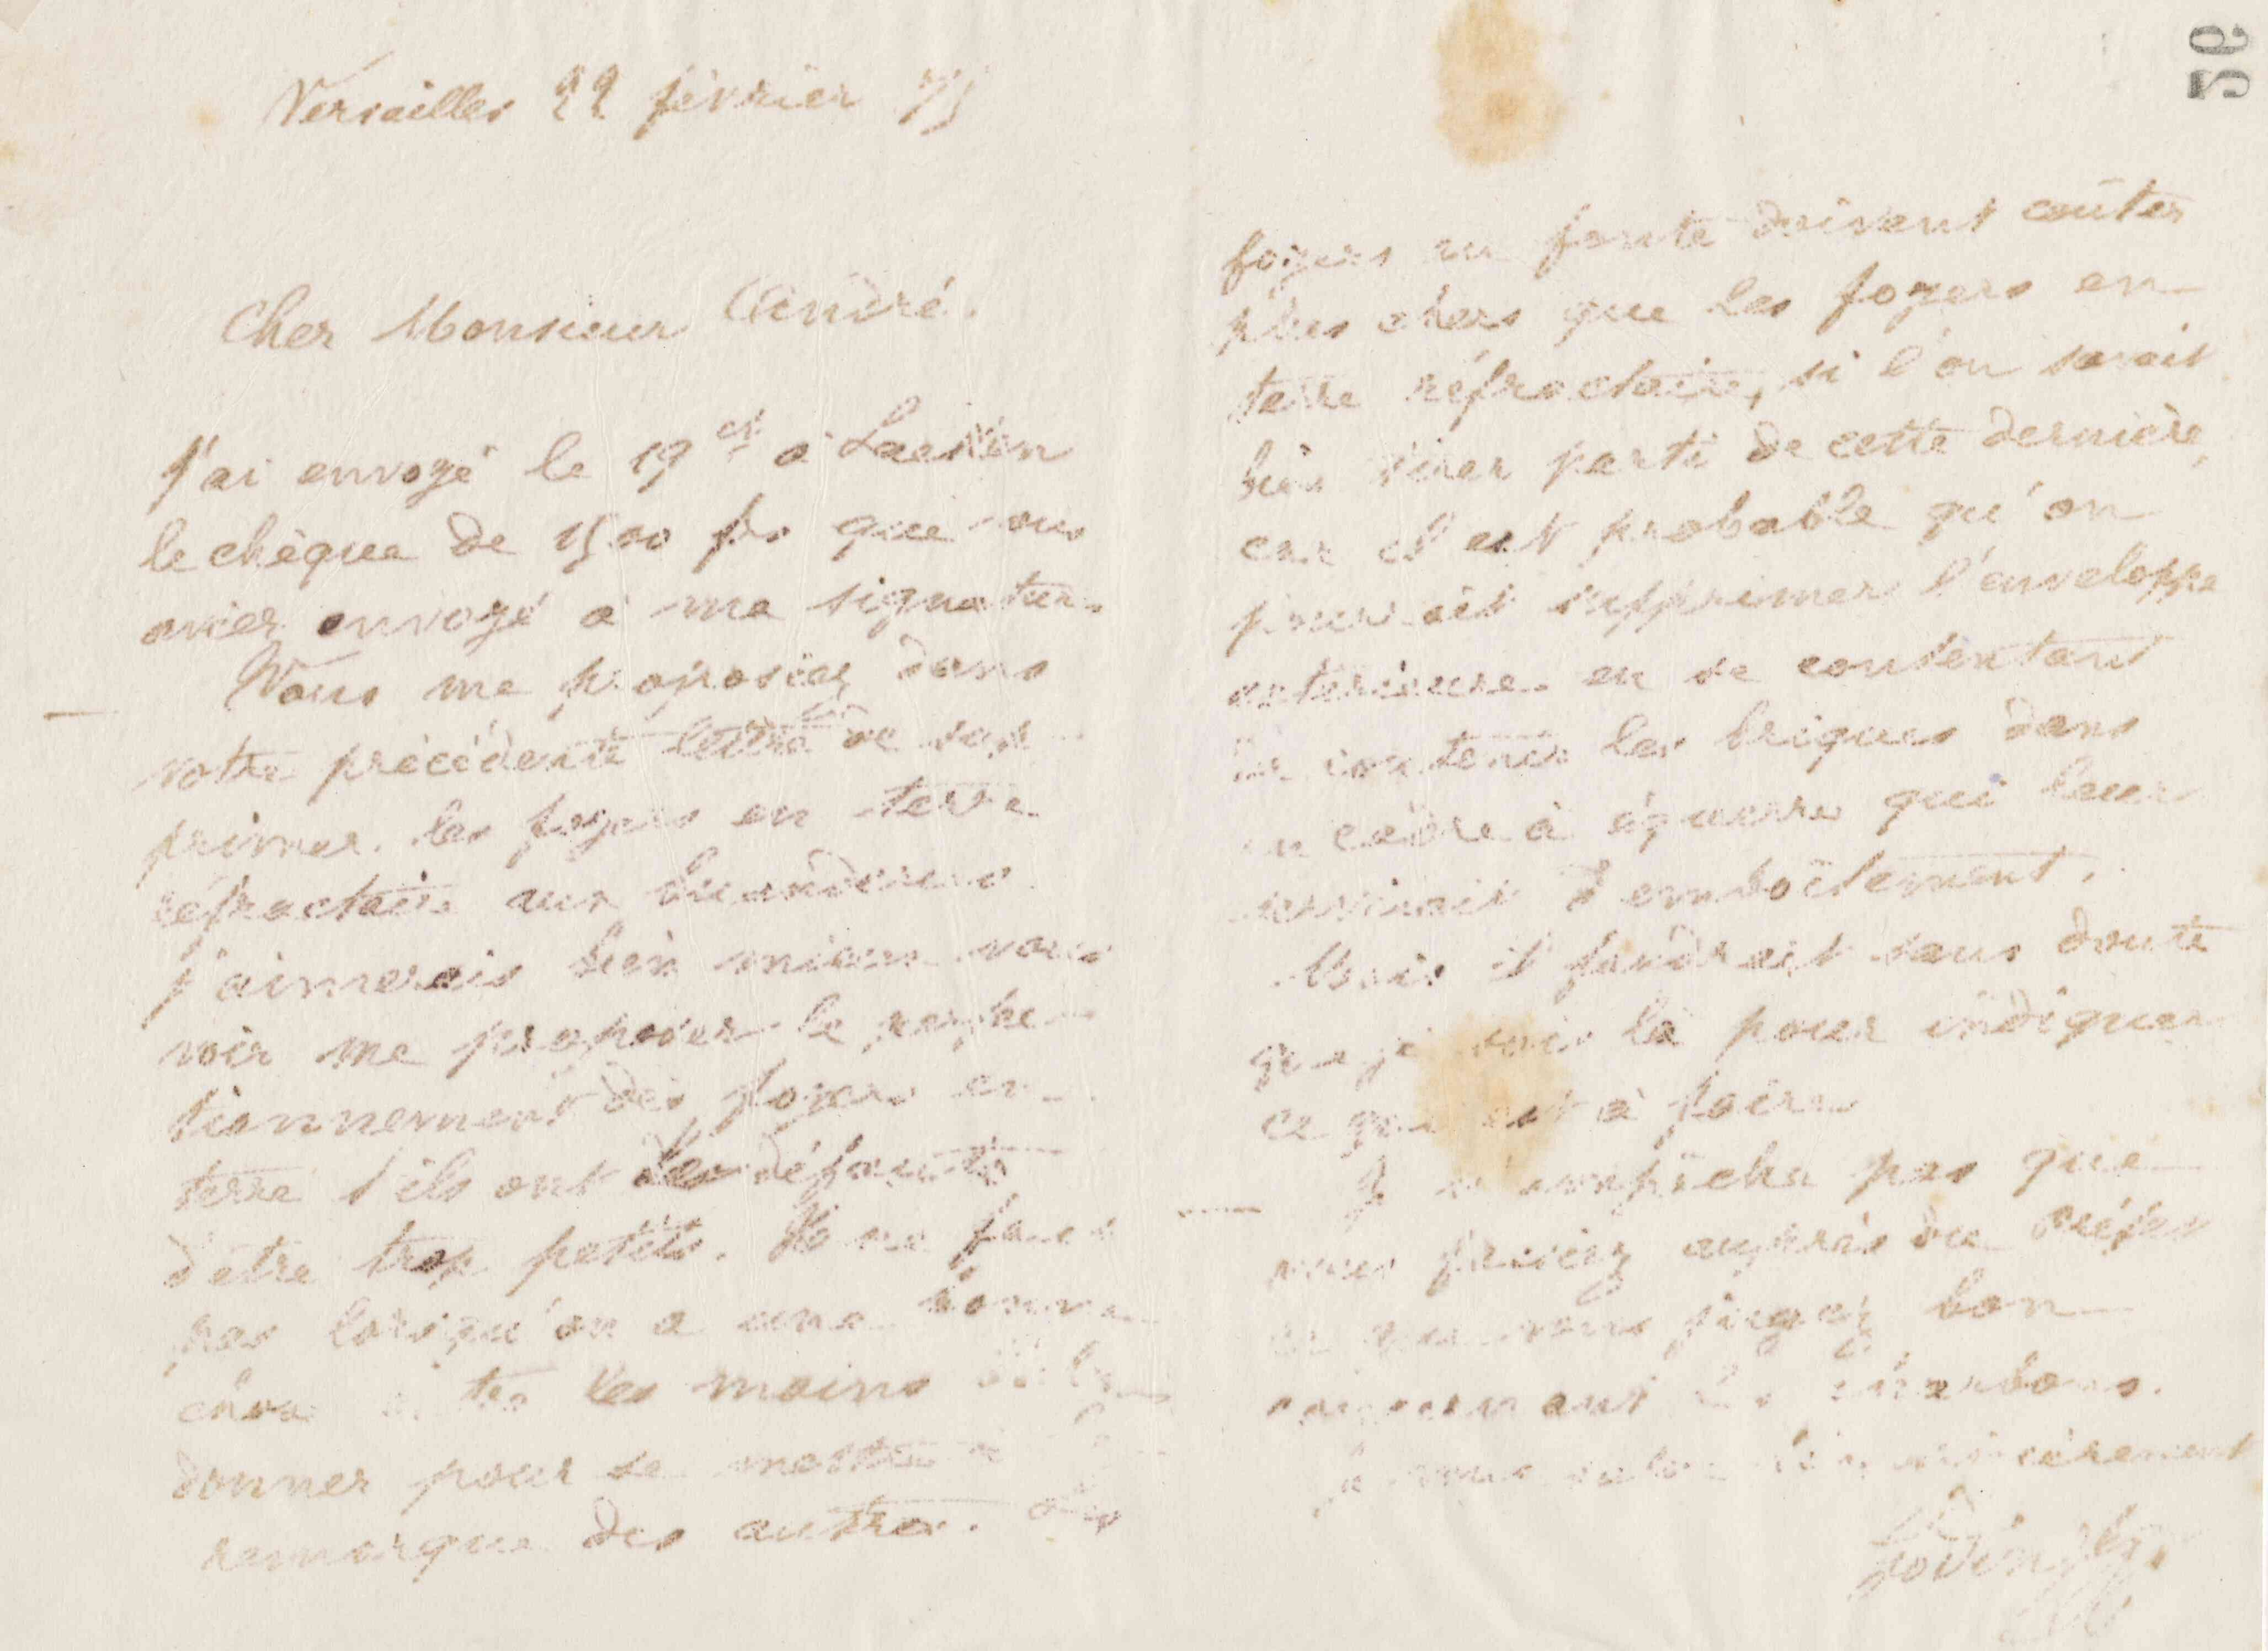 56
Versailles 22 février 75
Cher Monsieur André.
J'ai envoyé le 19 ct à Laeken
le chèque de 1500 fs que vous
aviez envoyé à ma signature
Vous me proposiez dans
votre précédente lettre de sup
primer les foyers en terre
réfractaire aux buanderies
j'aimerais bien mieux vous
voir me proposer le perfec
tionnement des foyers en
terre s'ils ont des défauts
d'être trop petits. Il ne faut
pas lorsqu'on a une bonne
chose les moins
donner pour se mettre à
remorque des autres. Les
foyers en fonte doivent coûter
plus chers que les foyers en
terre réfractaire, si l'on savait
bien tirer parti de cette dernière,
car il est probable qu'on
pourrait supprimer l'enveloppe
exterieure en se contentant
de contenir les briques dans
un cadre à équerre qui leur
servirait d'emboîtement.
Mais il faudrait sans doute
que je sois là pour indiquer
ce qui est à faire
Je n'empêche pas que
vous fassiez auprès du
ce que vous jugez bon
concernant les charbons.
Je vous salue bien sincèrement
Godin